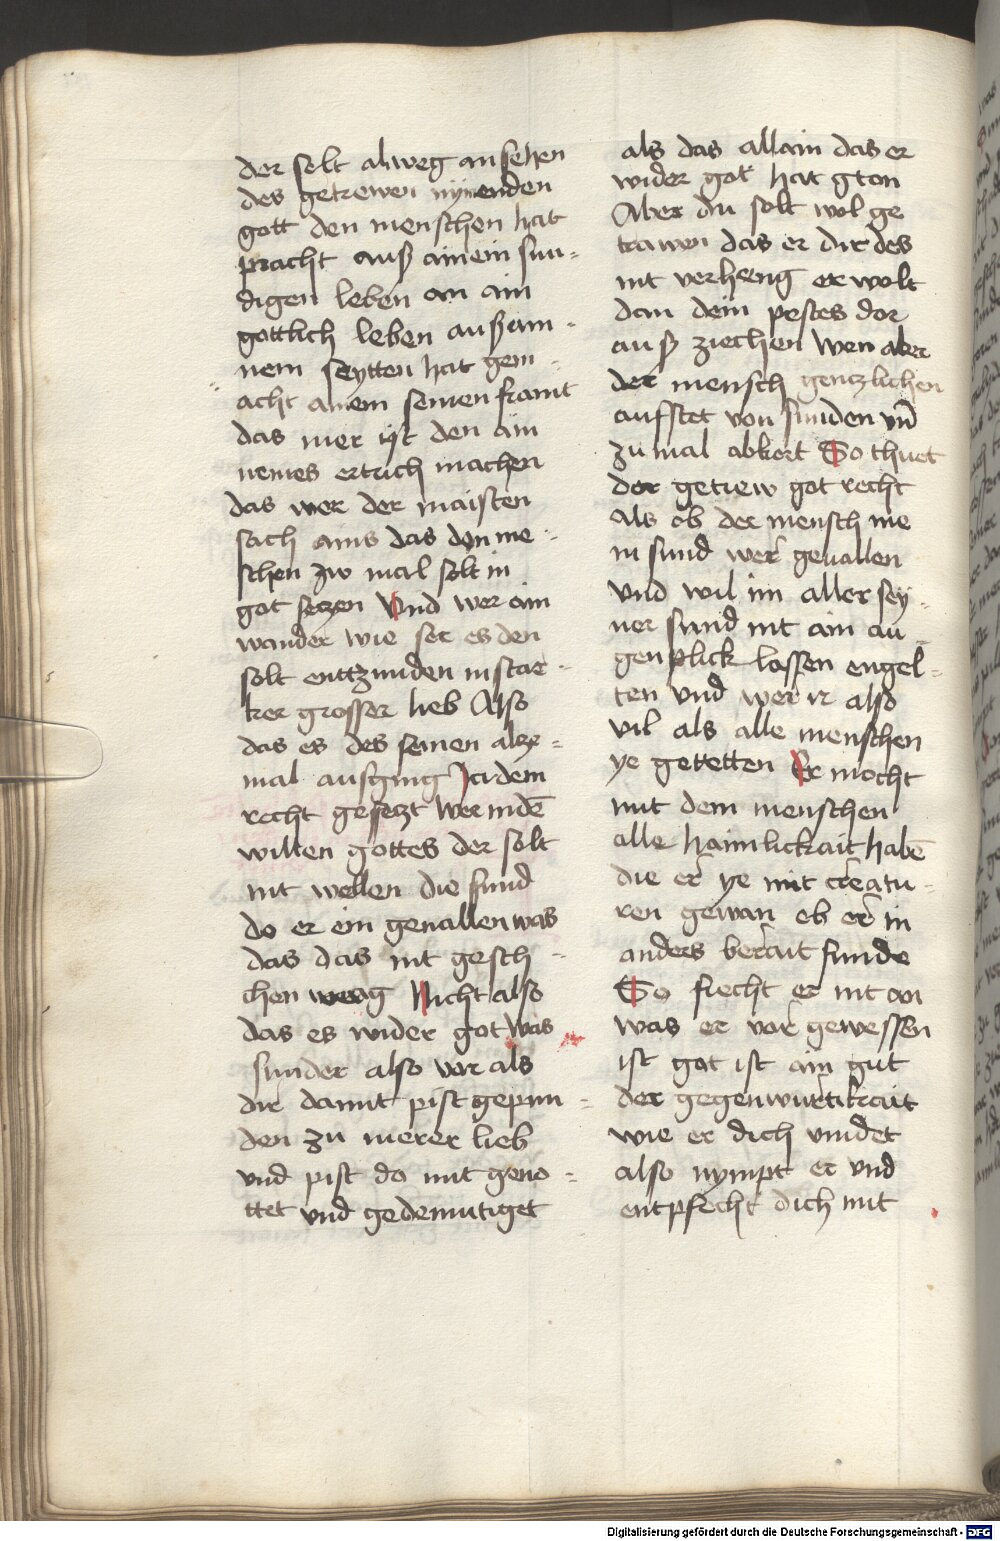 der solt alweg an sehen
des getrewen nymenden
gott den menschen hat
pracht auß ainem sun=
digen leben an ain
gottlich leben auß ain=
nem seytten hat gem=
acht ainem seinen frawnt
das mer ist den ain
nemes ertrich machen
das wer der maisten
sach ains das den me=
schen zw mal solt in
got setzen Vnd wer ain
wunder wie ser es den
solt enttzunden in star=
ker grosser lieb Also
das es des seinen alze=
mal ausging Ja dem
recht gesetzt wer in dē
willen gottes der solt
nit wellen die sund
do er ein geuallen was
das das nit gesch=
chen wer Nicht also
das es wider got was
sunder also vor als
dir damit pist gepun=
den zu merer lieb
vnd pist do mit geno=
ttet vnd gedemutiget
als das allain das er
wider got hat gton
Aber du solt wol ge
trawen das er dir des
nit verheng er wolt
dan dein pestes dor
auß ziechen Wen aber
der mensch gentzlichen
aufstet von sunden vnd
zu mal abkert So thuet
der getrew got recht
als ob der mensch nie
in sund wer geuallen
vnd wil im aller sey=
ner sund nit ain au=
genplick lassen engel=
ten vnd wer ir also
vil als alle menschen
ye getetten Er mocht
mit dem menschen
alle haimlickait habē
die er ye mit creatu=
ren gewan ob er in
anders berait funde
So siecht er nit an
was er vor gewessen
ist got ist ain gut
der gegenwurtikait
wie er dich vindet
also nympt er vnd
entpfecht dich mit
Digitalisierung gefördert durch die Deutsche Forschungsgemeinschaft - DFG